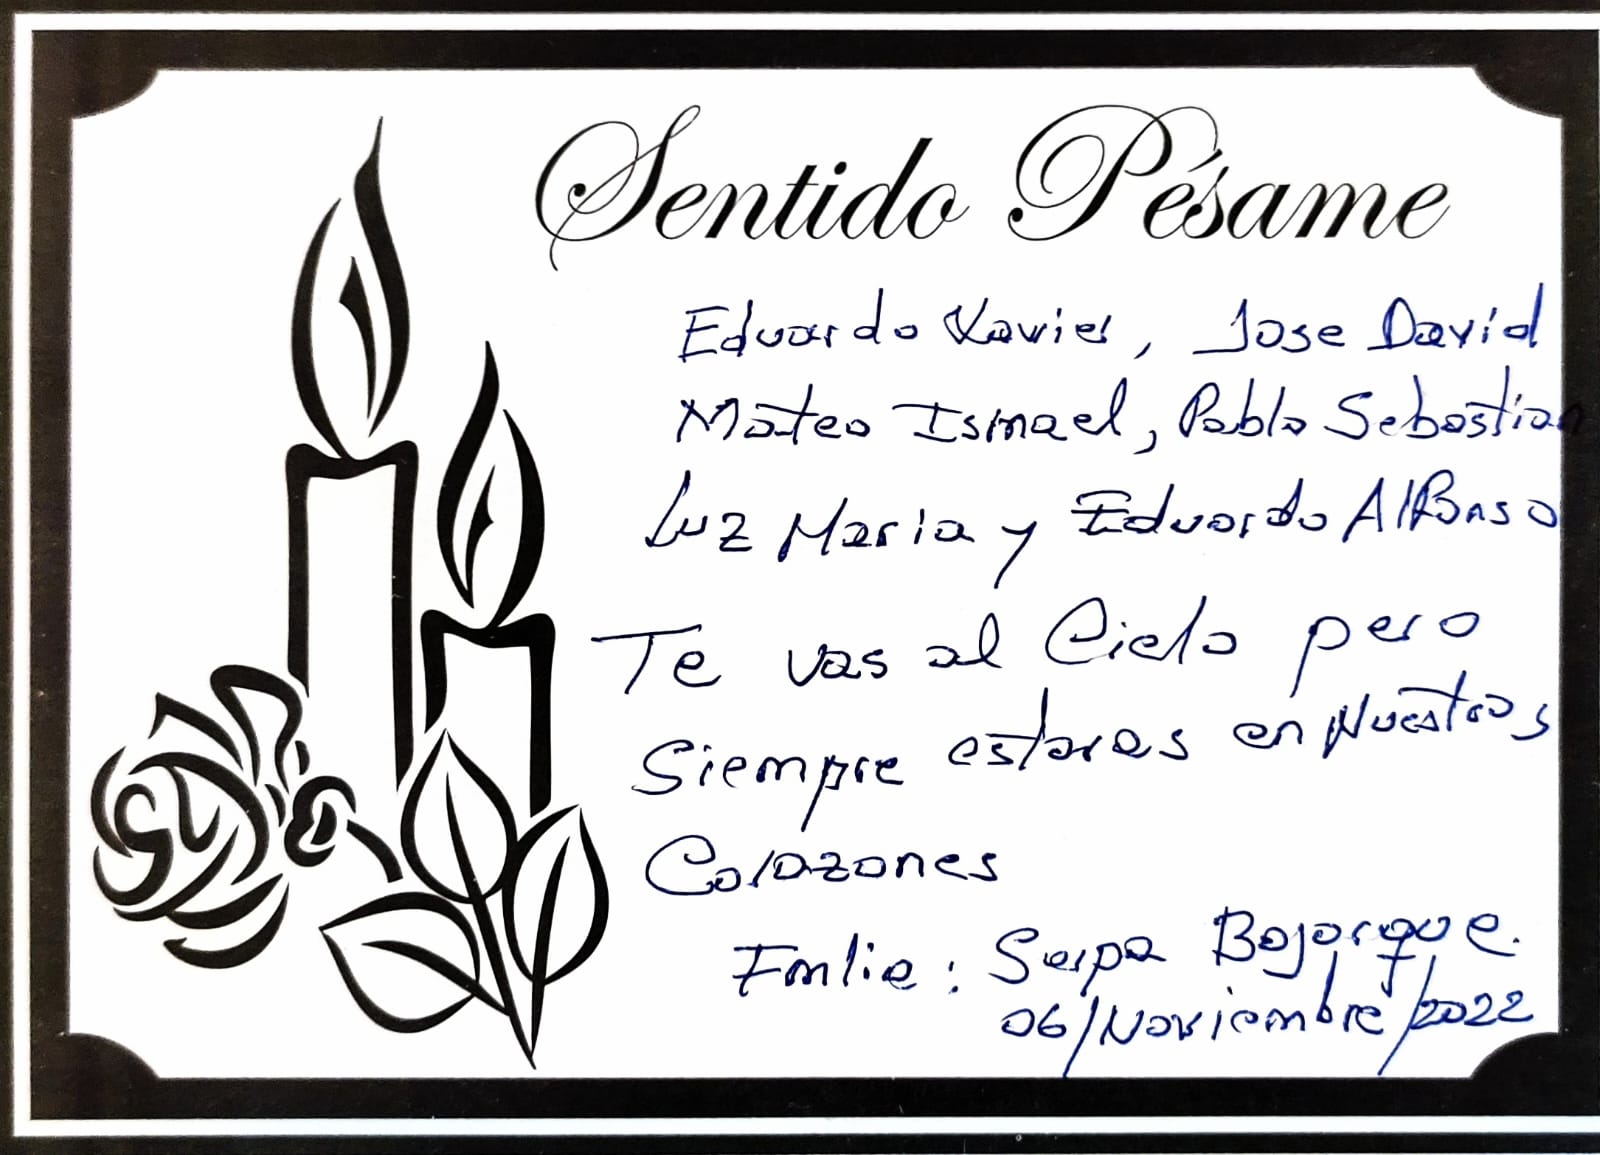 Sentido Pésame
Eduardo Xavier, Jose David
Mateo Ismael, Pablo Sebastian
Luz Maria y Eduardo Alfonso
Te vas al Cielo pero
Siempre estaras en Nuestros
Corazones
Fmlia: Serpa Bojorque.
06/Noviembre/2022